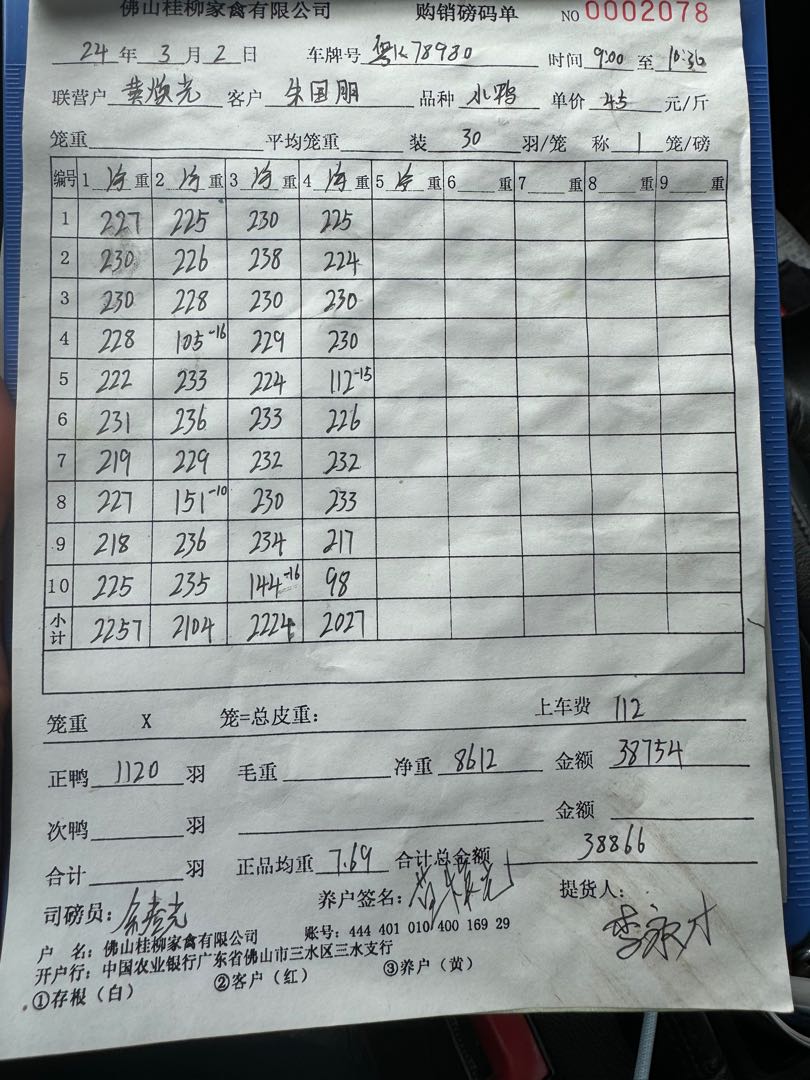 佛山桂柳家禽有限公司 购销磅码单 NO 0002078
24 年 3 月 2 日 车牌号 粤K78930 时间 9:00 至 10:36
联营户 黄焕光 客户 朱国朋 品种 水鸭 单价 4.5 元/斤
笼重 平均笼重 装 30 羽/笼 称 1 笼/磅
编号 1 净 重 2 净 重 3 净 重 4 净 重 5 净 重 6 重 7 重 8 重 9 重
1 227 225 230 225
2 230 226 238 224
3 230 228 230 230
4 228 105-16 229 230
5 222 233 224 112-15
6 231 236 233 226
7 219 229 232 232
8 227 151-10 230 233
9 218 236 234 217
10 225 235 144-16 98
小计 2257 2104 2224 2027
笼重 X 笼=总皮重: 上车费 112
正鸭 1120 羽 毛重 净重 8612 金额 38754
次鸭 羽 金额
合计 羽 正品均重 7.69 合计总金额 38866
司磅员: 养户签名: 提货人:
户 名: 佛山桂柳家禽有限公司 账号: 444 401 010 400 169 29
开户行: 中国农业银行广东省佛山市三水区三水支行
①存根(白) ②客户(红) ③养户(黄)